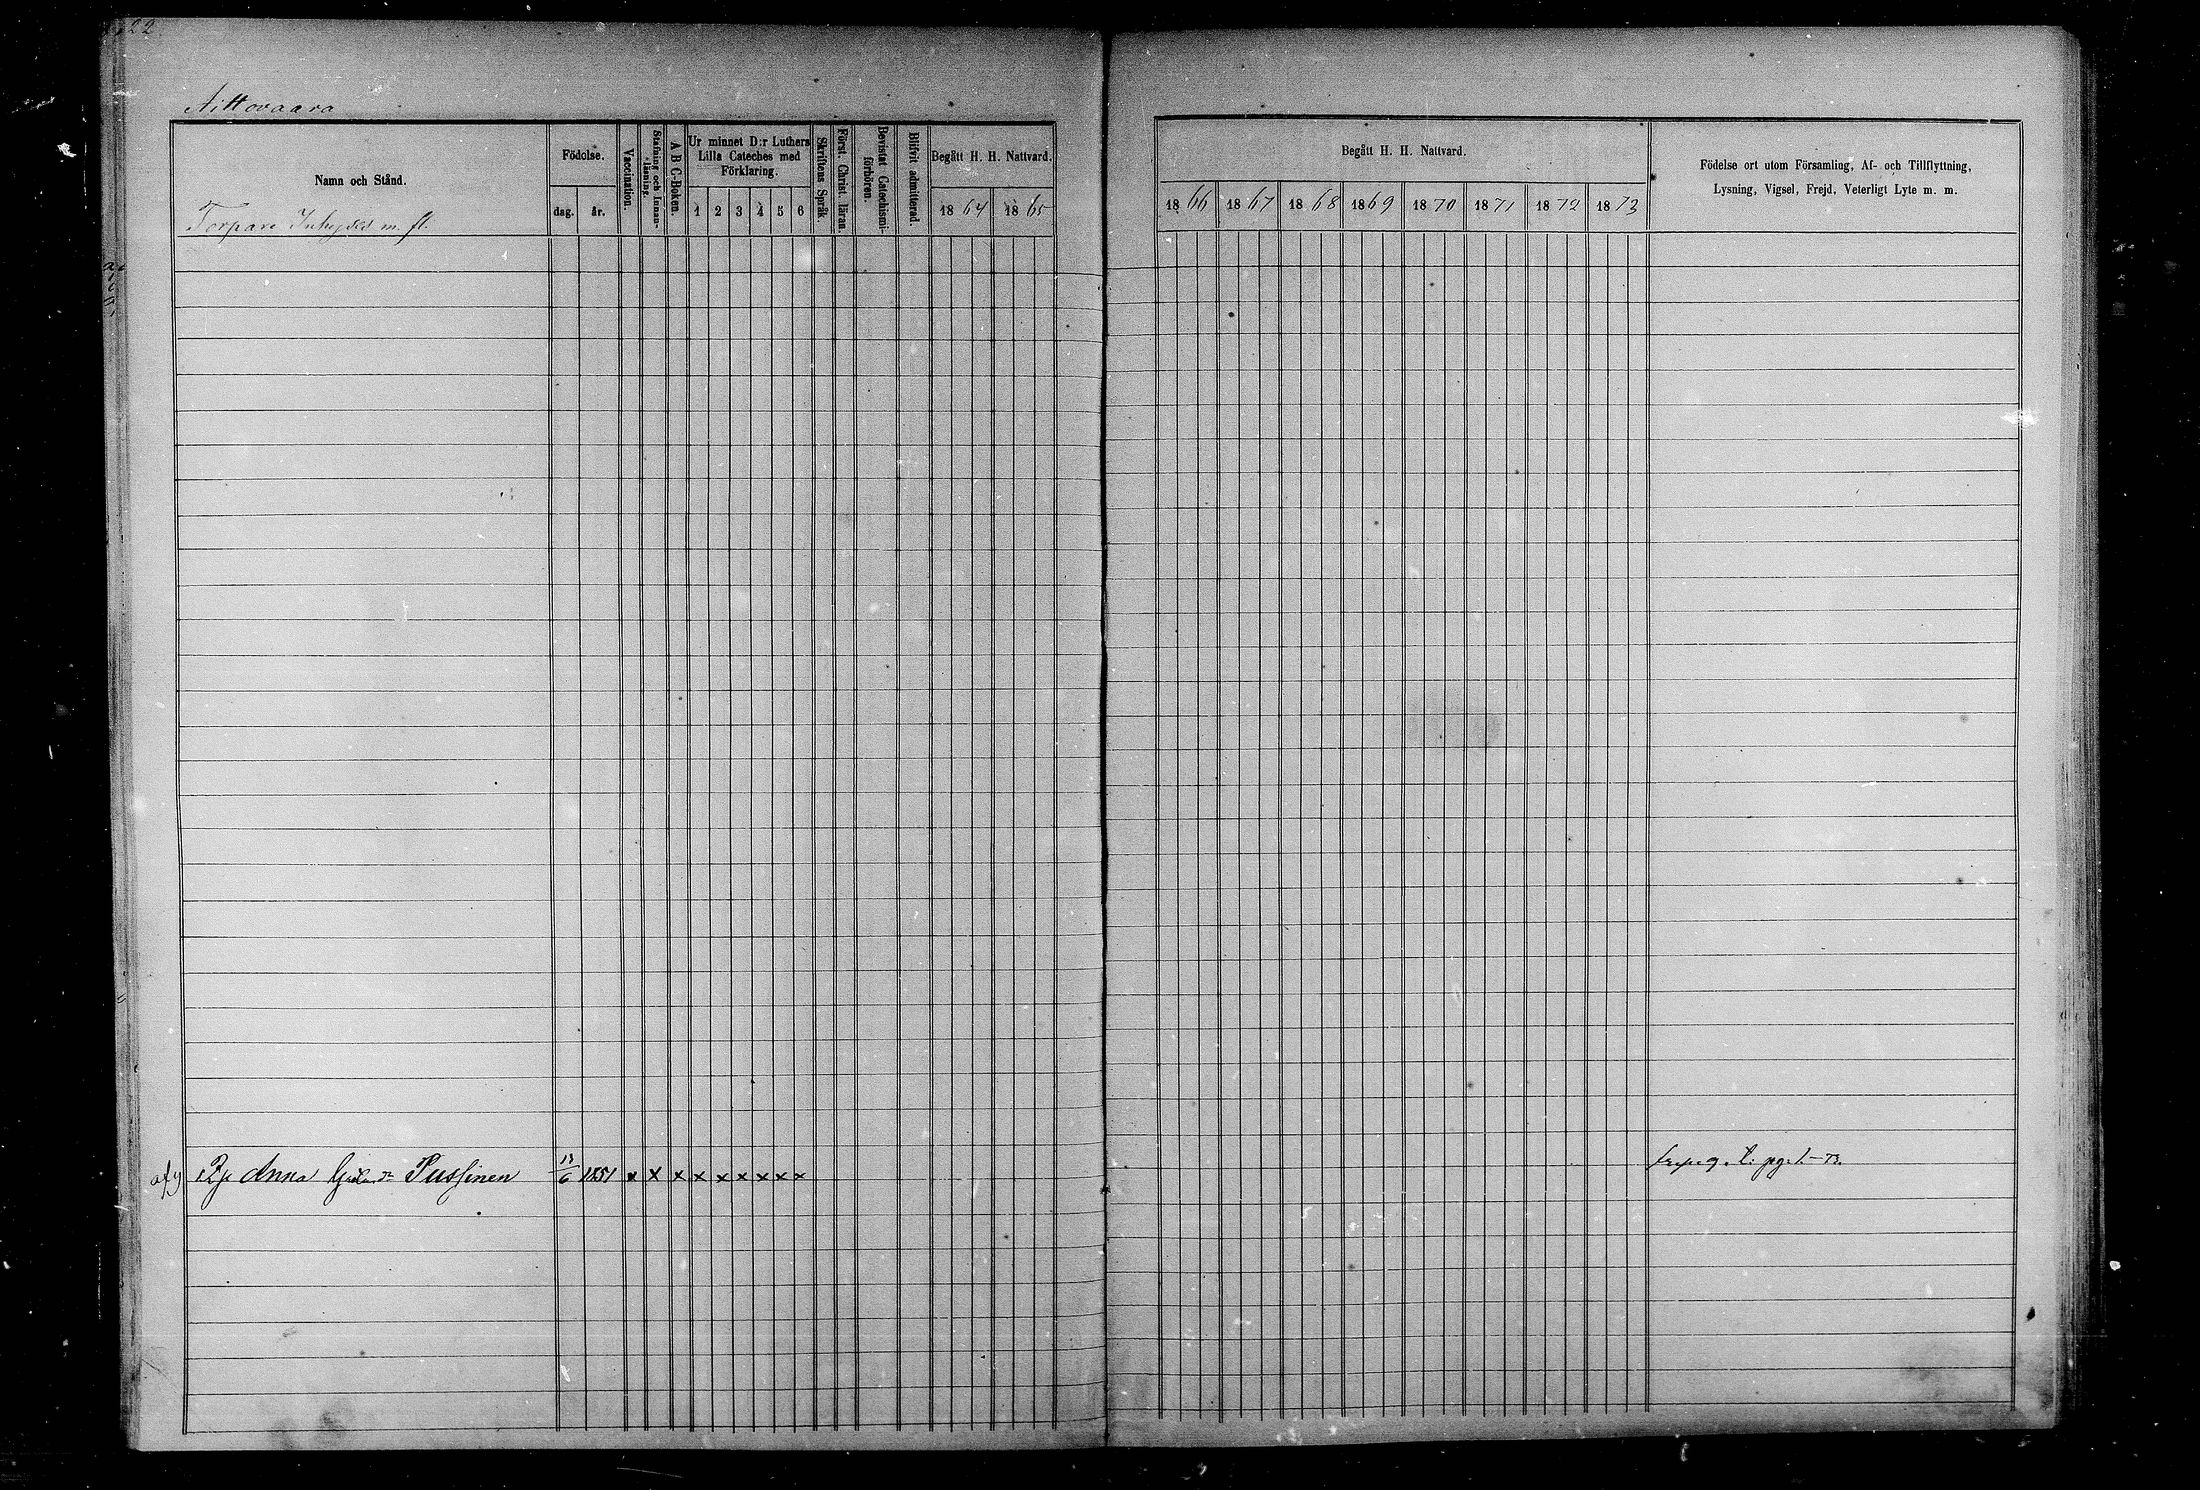 22
Aittovaara
Namn och Stånd.
Torpare Inhyses m. fl.
Födelse.
dag. år.
Vaccination.
Stafning och Innan-
läsning.
A B C-Boken.
Ur minnet D:r Luthers
Lilla Cateches med
Förklaring.
1 2 3 4 5 6
Skriftens Språk
Först. Christ läran.
Bevistat Catechismi-
förhören.
Blifvit admitterad.
Begått H. H. Nattvard.
1864 1865
Begått H. H. Nattvard.
1866 1867 1868 1869 1870 1871 1872 1873
Födelse ort utom Församling, Af- och Tillflyttning,
Lysning, Vigsel, Frejd, Veterligt Lyte m. m.
Anna Pussinen 13/6 1851 x x x x x x x x x